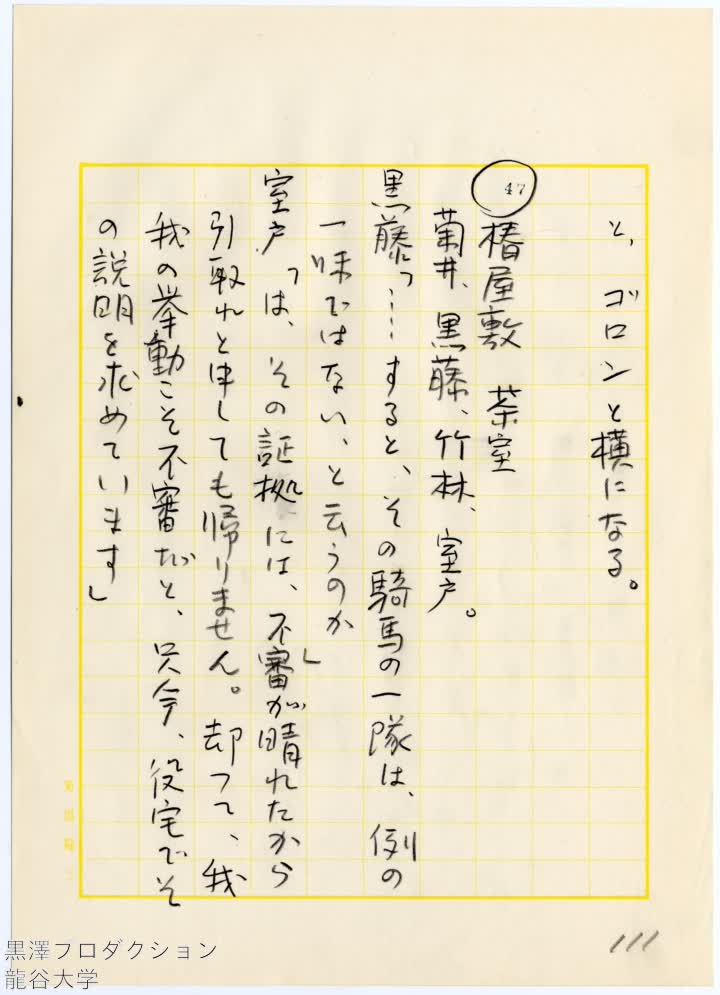 と、ゴロンと横になる。
47
椿屋敷 茶室
菊井、黒藤、竹林、室戸。
黒藤「……すると、その騎馬の一隊は、例の
一味ではない、と云うのか」
室戸「は、その証拠には、不審が晴れたから
引取れと申しても帰りません。却つて、我
我の挙動こそ不審だと、只今、役宅でそ
の説明を求めています」
111
黒澤プロダクション
龍谷大学